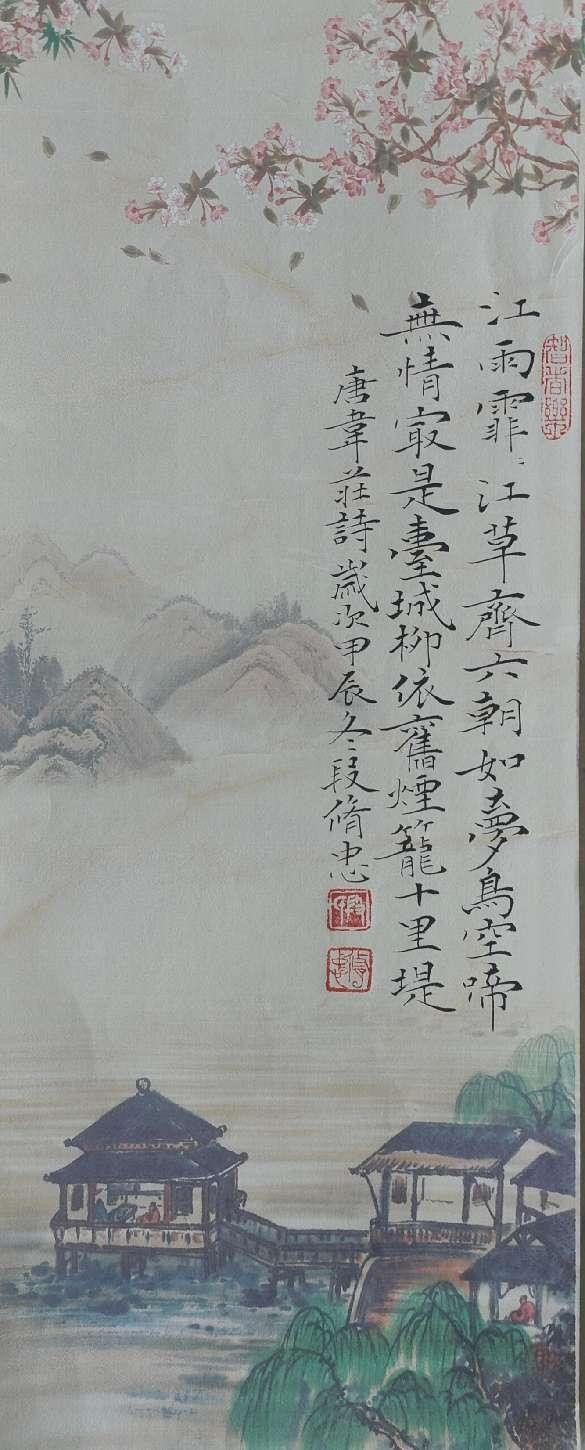 江雨霏〻江草齊六朝如夢鳥空啼
無情寂是臺城柳依舊煙籠十里堤
唐韋莊詩歲次甲辰冬段脩忠